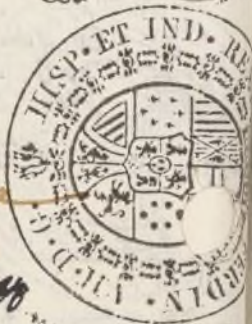 ERDIN · VII · D · G · HISP · ET IND · RE